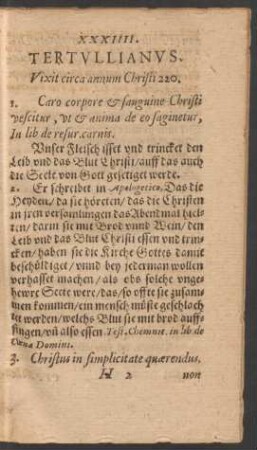 XXXIIII.
TERTVLLIANVS.
Vixit circa annum Christi 220.
1. Caro corpore & sanguine Christi
vescitur, vt & anima de eo saginetur,
In lib de resur. carnis.
Vnser Fleisch isset vnd trincket den
Leib vnd das Blut Christi / auff das auch
die Seele von Gott gesetiget werde.
2. Er schreibet in Apologetico, Das die
Heyden / da sie höreten / das die Christen
in jren versamlungen das Abendmal hiel-
ten / darin sie mit Brod vnnd Wein / den
Leib vnd das Blut Christi essen vnd trin-
cken / haben sie die Kirche Gottes damit
beschüldiget / vnnd bey jederman wollen
verhasset machen / als obs solche vnge-
hewre Leute were / das / so offte sie zusam-
men kommen / ein mensch müste geschlach-
tet werden / welchs Blut sie mit brod auff-
fingen / vñ also essen Test. Chemnit. in lib de
Cœna Domini.
3. Christus in simplicitate quærendus,
H 2 non